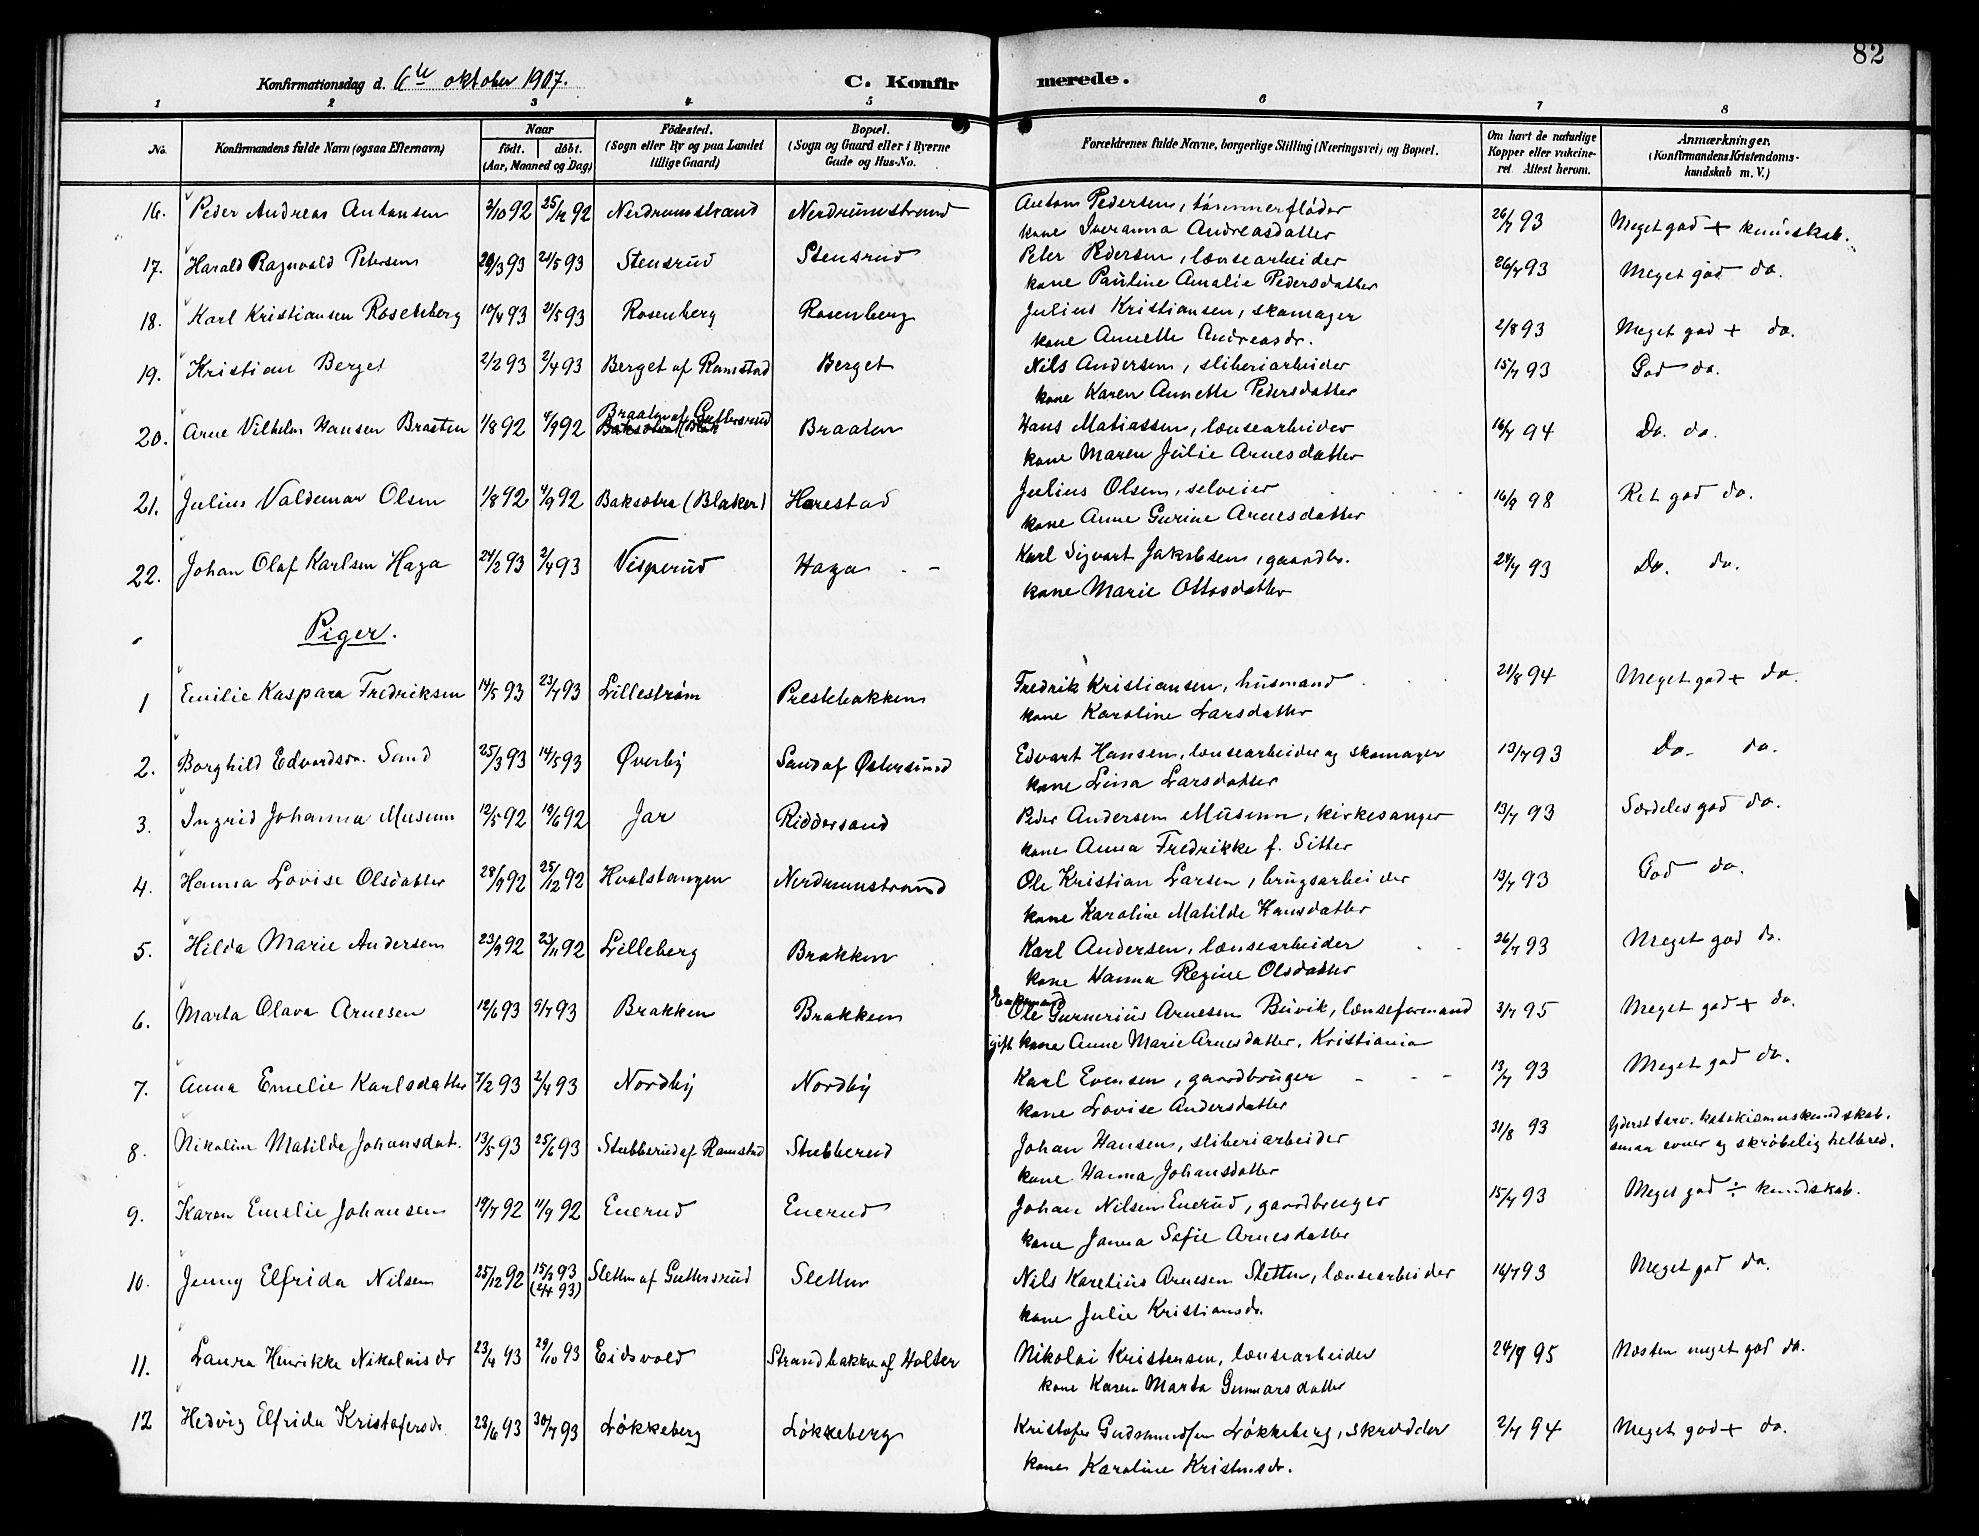 82
Konfirmationsdag d. 6te oktober 1907. C. Konfirmerede.
1 2 3 4 5 6 7 8
No. Konfirmandens fulde Navn (ogsaa Efternavn) Naar født. døbt. (Aar, Maaned og Dag) Fødested. (Sogn eller By og paa Landet tillige Gaard) Bopæl. (Sogn og Gaard eller i Byerne Gade og Hus-No. Forældrenes fulde Navne, borgerlige Stilling (Næringsvei) og Bopæl. Om havt de naturlige Kopper eller vakcineret. Attest herom. Anmærkninger. (Konfirmandens Kristendomskundskab m. V.)
16. Peder Andreas Antonsen 2/10 92 25/12 92 Nerdrumstrand Nerdrumstrand Anton Pedersen, tømmerfløder 26/7 93 Meget god + kundskab.
kone Iveranna Andreasdatter
17. Harald Ragnvald Petersen 20/3 93 21/5 93 Stensrud Stensrud Peter Pedersen, lænsearbeider 26/7 93 Meget god do.
kone Pauline Amalie Pedersdatter
18. Karl Kristiansen Rosenberg 10/4 93 21/5 93 Rosenberg Rosenberg Julius Kristiansen, skomager 2/8 93 Meget god + do.
kone Annette Andreasdr.
19. Kristian Berget 2/2 93 2/4 93 Berget af Ramstad Berget Nils Andersen, sliberiarbeider 15/7 93 God do.
kone Karen Annette Pedersdatter
20. Arne Vilhelm Hansen Braaten 1/8 92 4/9 92 Braaten af Guttersrud Braaten Hans Matiassen, lænsearbeider 16/7 94 Do. do.
kone Maren Julie Arnesdatter
21. Julius Valdemar Olsen 1/8 92 4/9 92 Baksøbra (Blaker) Harestad Julius Olsen, selveier 16/9 98 Ret god do.
kone Anne Gurine Arnesdatter
22. Johan Olaf Karlsen Haga 24/2 93 2/4 93 Visperud Haga Karl Sigvart Jakobsen, gaardbr. 24/7 93 Do. do.
kone Marie Ottosdatter
Piger.
1 Emilie Kaspara Fredriksen 14/5 93 23/7 93 Lillestrøm Prestebakken Fredrik Kristiansen, husmand 21/8 94 Meget god + do.
kone Karoline Larsdatter
2. Borghild Edvardsdr. Sand 25/3 93 14/5 93 Øverby Sand af Østersund Edvart Hansen, lænsearbeider og skomager 13/7 93 Do. do.
kone Lina Larsdatter
3. Ingrid Johanna Museum 12/5 92 19/6 92 Jar Riddersand Peder Andersen Museum, kirkesanger 13/7 93 Særdeles god do.
kone Anna Fredrikke f. Sitter
4. Hanna Lovise Olsdatter 28/9 92 25/12 92 Hvalstangen Nerdrumstrand Ole Kristian Larsen, brugsarbeider 13/7 93 God do.
kone Karoline Matilde Hansdatter
5. Hilda Marie Andersen 23/9 92 23/11 92 Lilleberg Brakken Karl Andersen, lænsearbeider 26/7 93 Meget god do.
kone Hanna Regine Olsdatter
6. Marta Olava Arnesen 12/6 93 9/7 93 Brakken Brakken Enkemand Ole Gunerius Arnesen Buvik, lænseformand 3/7 95 Meget god + do.
gift kone Anne Marie Arnesdatter, Kristiania
7. Anna Emelie Karlsdatter 7/2 93 2/4 93 Nordby Nordby Karl Evensen, gaardbruger 13/7 93 Meget god do.
kone Lovise Andersdatter
8. Nikoline Matilde Johansdat. 13/5 93 25/6 93 Stubberud af Ramstad Stubberud Johan Hansen, sliberiarbeider 31/8 93 Yderst tarv. katekismuskundskab.
kone Hanna Johansdatter smaa evner og skrøbelig helbred.
9. Karen Emelie Johansen 19/7 92 11/9 92 Enerud Enerud Johan Nilsen Enerud, gaardbruger 15/7 93 Meget god ÷ kundskab.
kone Janna Sofie Arnesdatter
10. Jenny Elfrida Nilsen 25/12 92 15/2 93 Sletten af Guttersrud Sletten Nils Karelius Arnesen Sletten, lænsearbeider 16/7 93 Meget god do.
(2/4 93) kone Julie Kristiansdr.
11. Laura Henrikke Nikolaisdr 23/4 93 29/10 93 Eidsvold Strandbakken af Holter Nikolai Kristensen, lænsearbeider 24/9 95 Næsten meget god do.
kone Karen Marta Gunnarsdatter
12 Hedvig Elfrida Kristofersdr. 23/6 93 30/7 93 Løkkeberg Løkkeberg Kristofer Gudmundsen Løkkeberg, skrædder 2/7 94 Meget god + do.
kone Karoline Kristensdr.